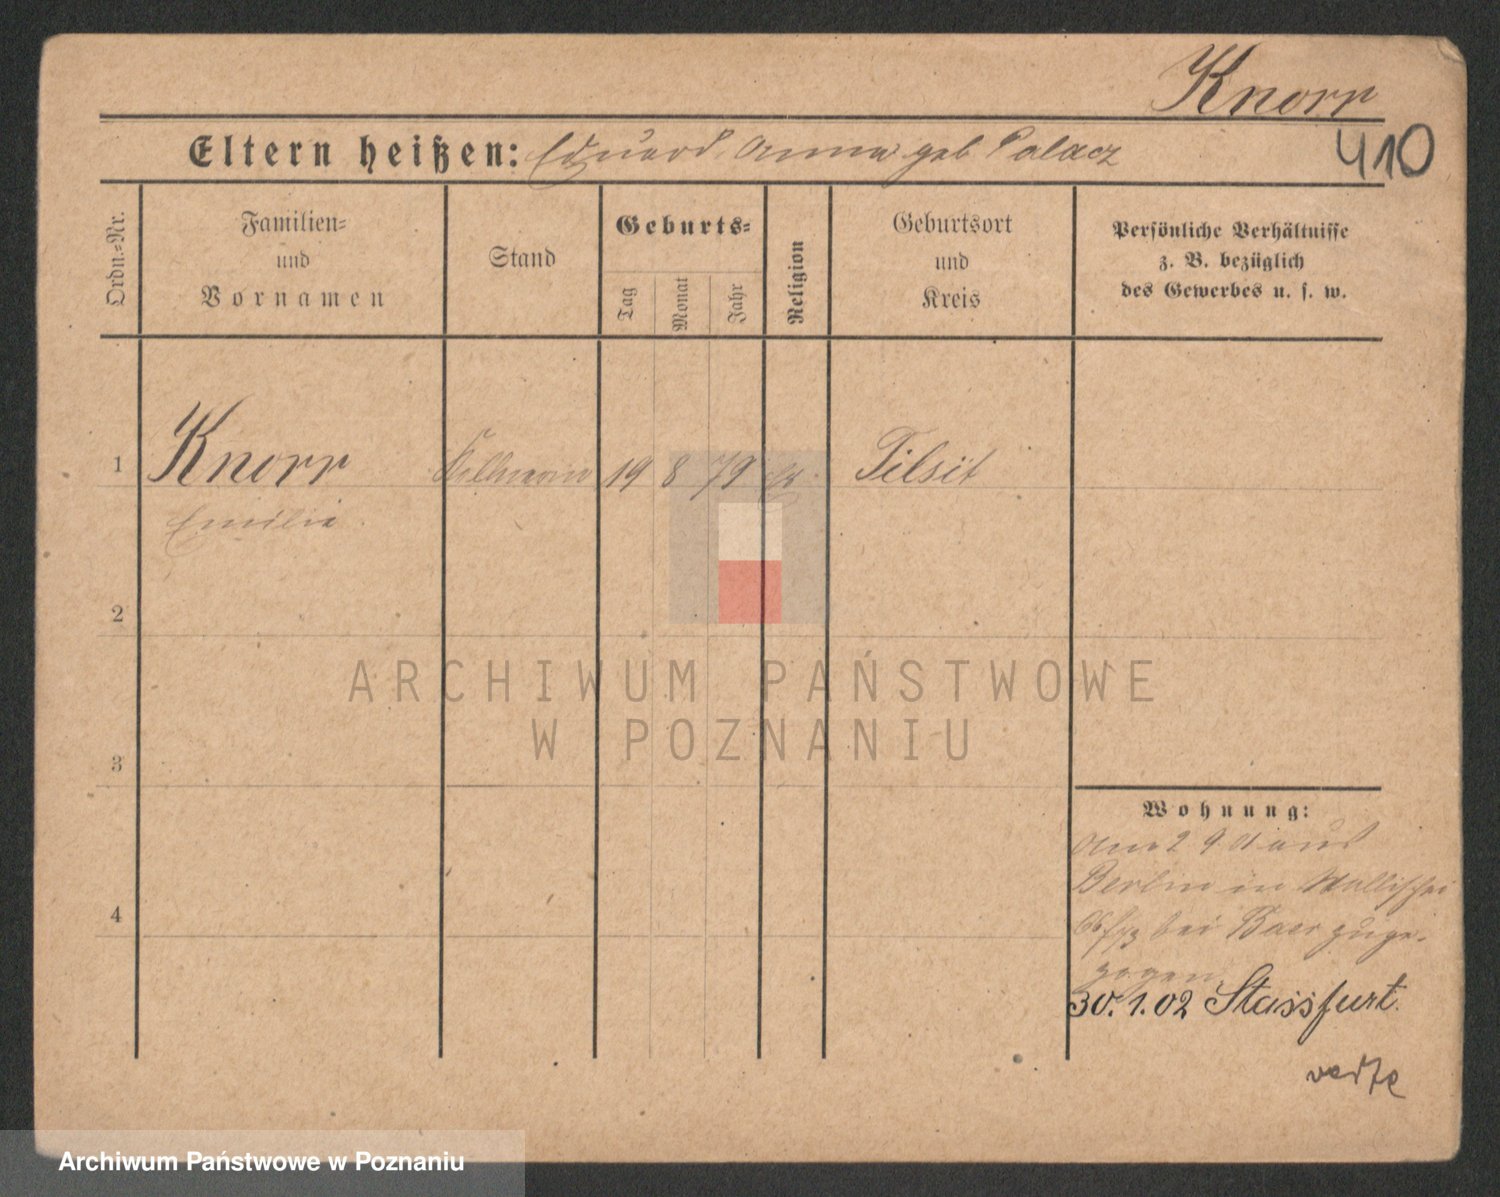 Knorr
410
Eltern heißen: Eduard. Anna geb Palacz
Ordn.=Nr.
Familien=
und
Vornamen
Stand
Geburts=
Tag
Monat
Jahr
Religion
Geburtsort
und
Kreis
Persönliche Verhältnisse
z. B. bezüglich
des Gewerbes u. s. w.
1 Knorr 19 8 79 Tilsit
Emilie
2
3
4
ARCHIWUM PAŃSTWOWE
W POZNANIU
Wohnung:
am 29 aus
Berlin in Wallischei
bei Baer zuge-
zogen
30.1.02 Stassfurt.
verte
Archiwum Państwowe w Poznaniu